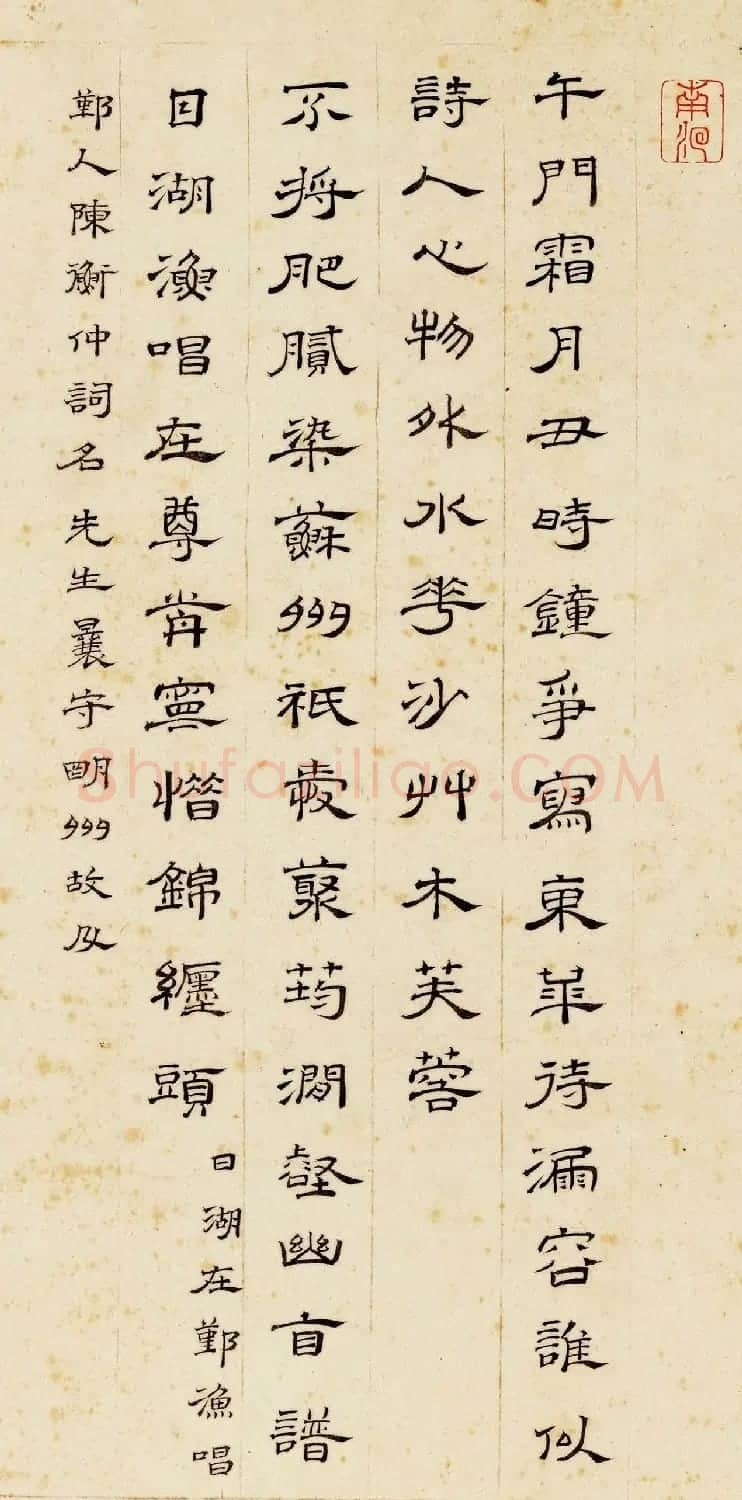 午門霜月丑時鐘爭寫東華待漏容誰似
詩人心物外水華沙艸木芙蓉
不將肥膩染蘇州祇愛藂筠澗壑幽首譜
日湖漁唱在尊前寧惜錦纏頭 日湖在鄞漁唱
鄞人陳衡仲詞名先生曩守明州故及
Shufaziliao.COM